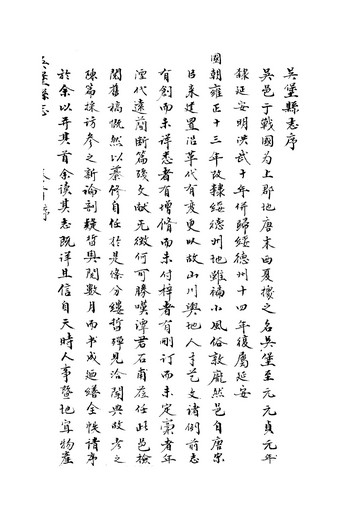 吳堡縣志序
吳邑于戰國為上郡地唐末西夏據之名吳堡至元元貞元年
隸延安明洪武十年併歸綏德州十四年復屬延安
國朝雍正十三年改隸綏德州地雖褊小風俗敦龐然邑自唐宋
以來建置沿革代有變更以故山川輿地人才藝文諸例前志
有創而未詳悉者有增脩而未付梓者有刪訂而未定稾者年
湮代遠蘭斷篇殘文獻無徵何可勝嘆譚君石甫蒞任此邑檢
閱舊稿慨然以纂修自任於是條分縷晢殫見洽聞興政考之
陳篇採訪參之新論剖疑晢異閱數月而書成廼繕全帙請序
於余以弁其首余讀其志既詳且信自天時人事暨地宜物產
吳堡縣志
序